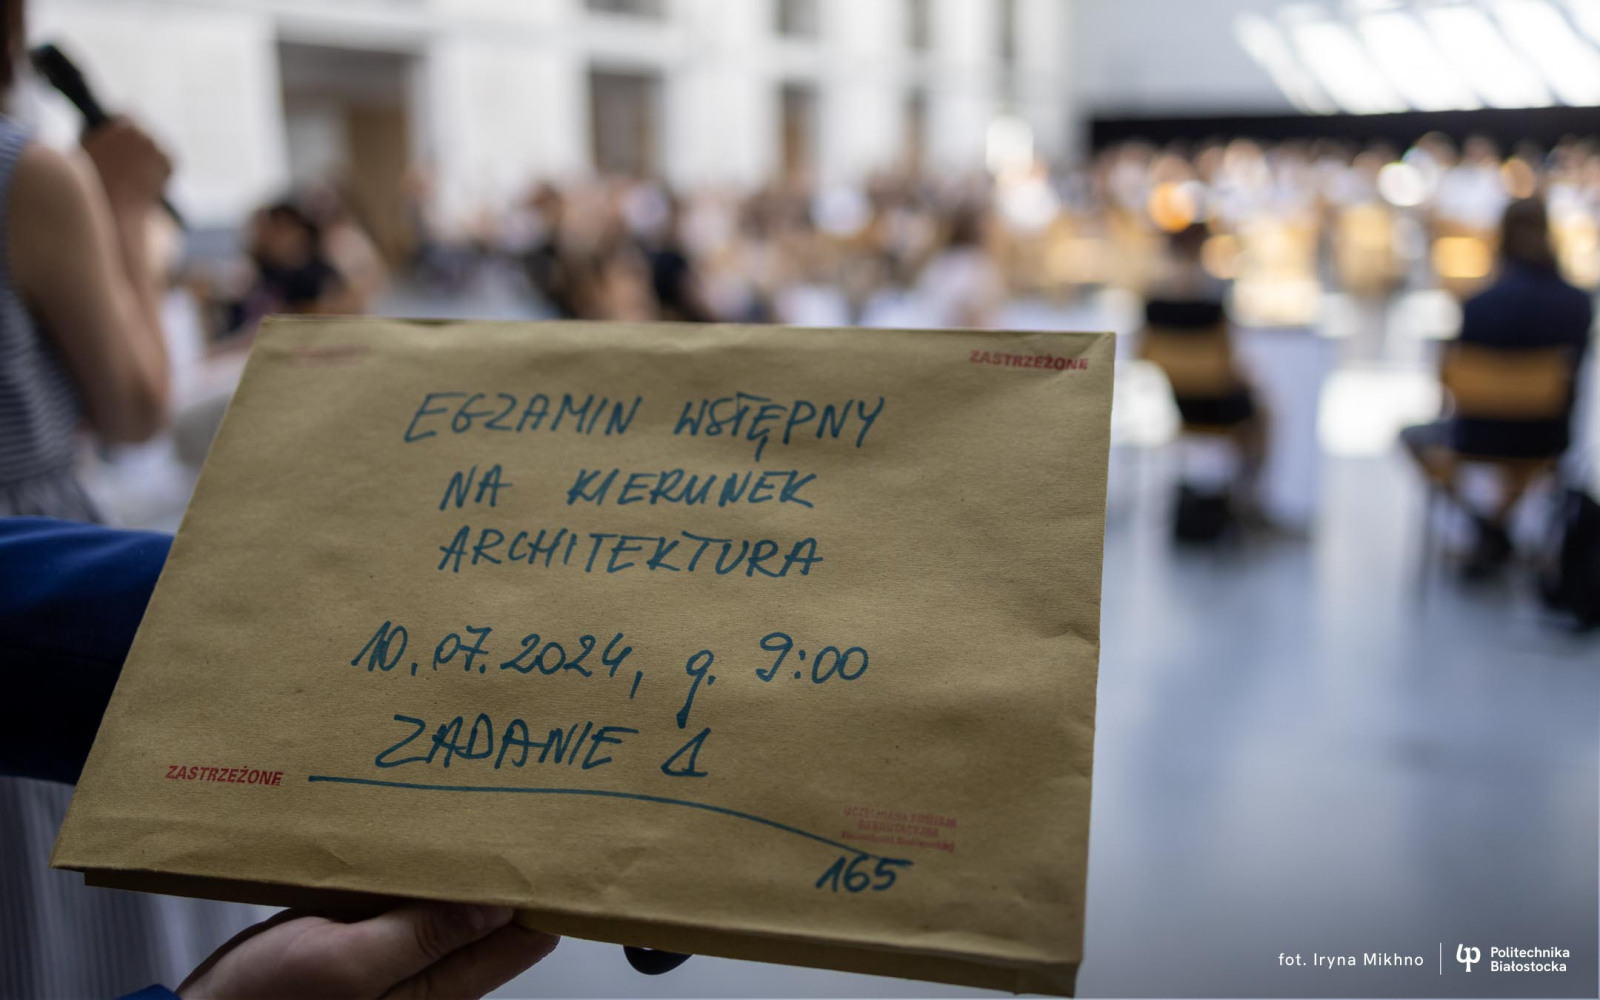 ZASTRZEŻONE
EGZAMIN WSTĘPNY
NA KIERUNEK
ARCHITEKTURA
10.07.2024, g. 9:00
ZADANIE 1
ZASTRZEŻONE
UCZELNIANA KOMISJA
REKRUTACYJNA
165
fot. Iryna Mikhno
Politechnika
Białostocka